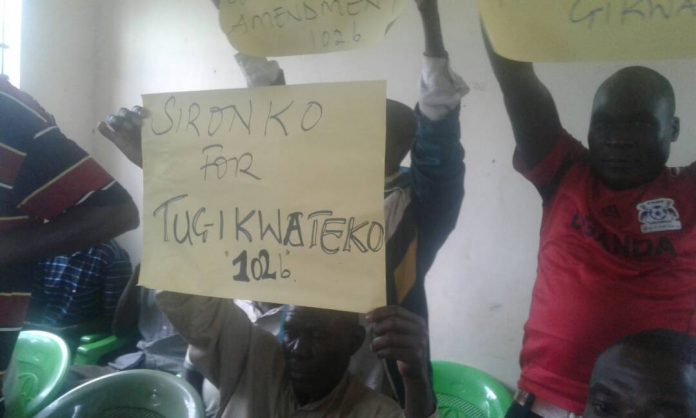 AMENDMENT
102b
GIKWA
SIRONKO
FOR
TUGIKWATEKO
102b.
UGANDA